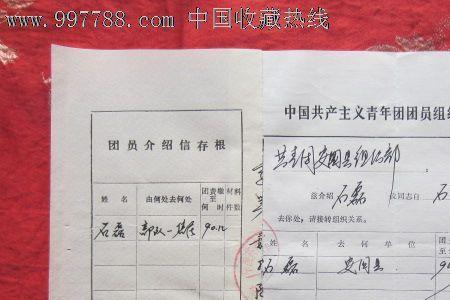 www.997788.com 中国收藏热线
团员介绍信存根
姓名 由何处去何处 团费缴至何时 材料件数
石磊 部队一 90.12
中国共产主义青年团团员组
共青团安图县组织部:
兹介绍 石磊 同志自 石
去你处,请接转组织关系。
姓名 去何单位 团
石磊 县